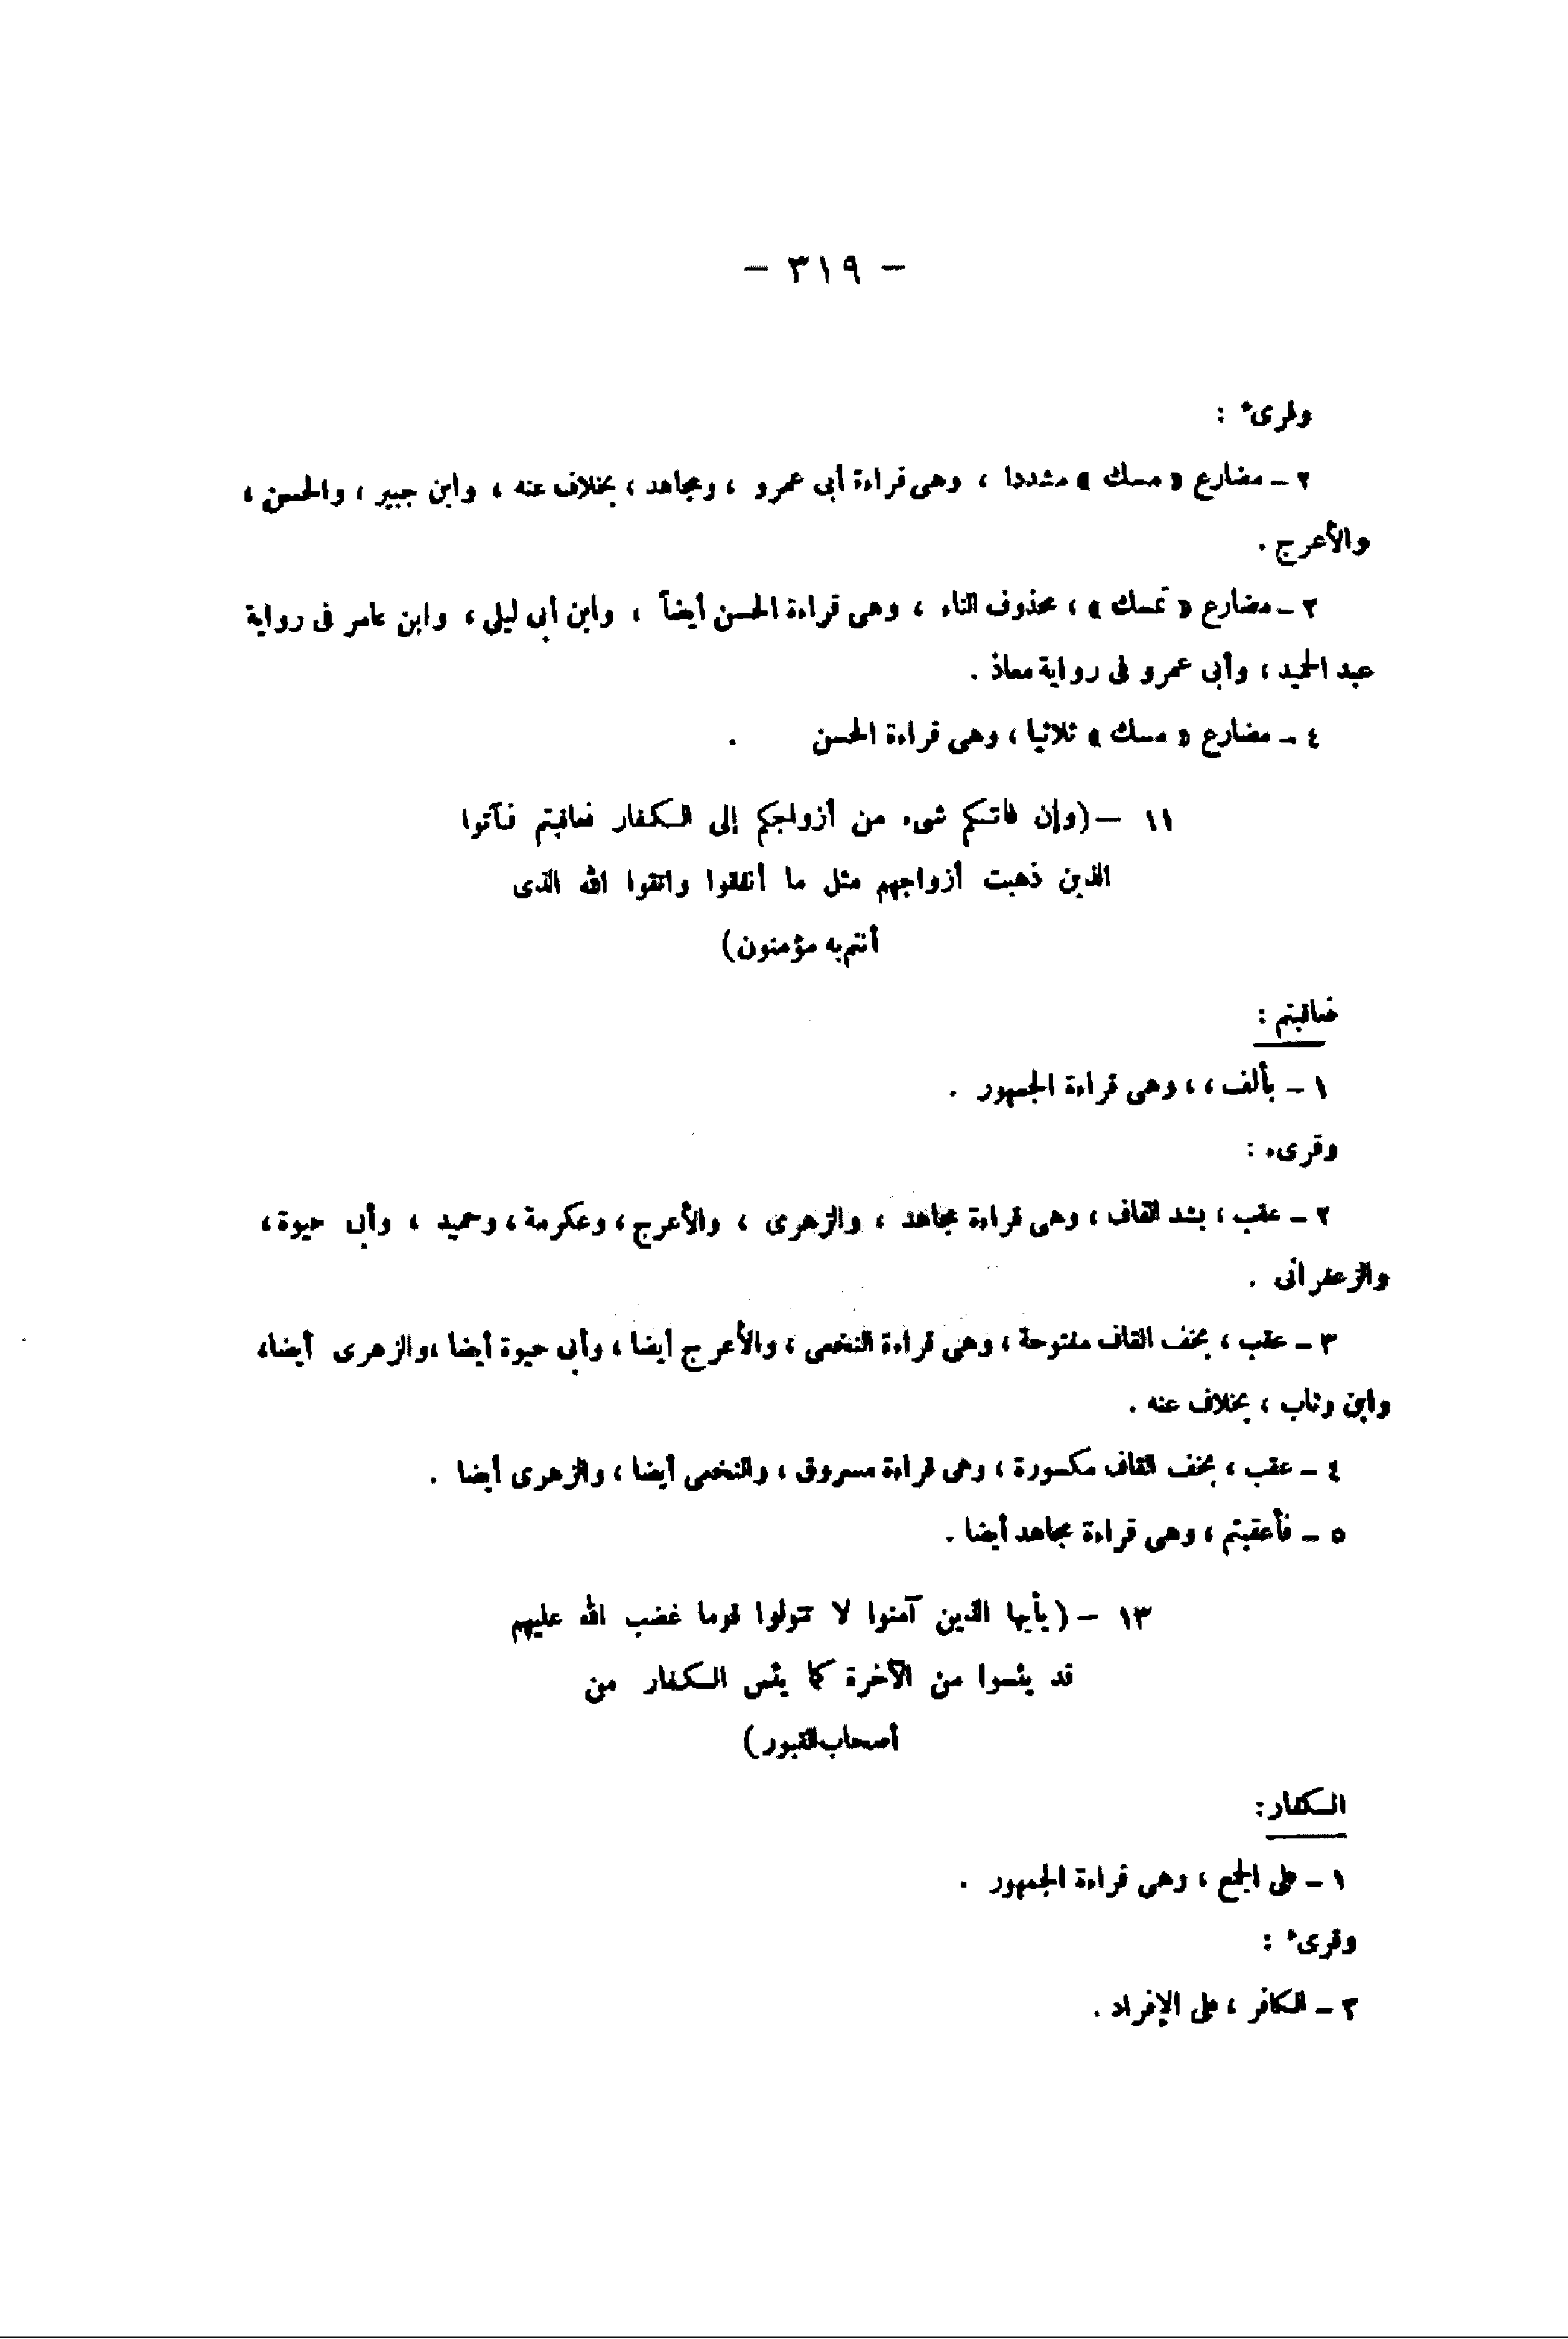 - ٣١٩ -
وقرىء :
٢ - مضارع « مسك » مشددا ، وهى قراءة أبى عمرو ، ومجاهد ، بخلاف عنه ، وابن جبير ، والحسن ،
والأعرج .
٣ - مضارع « تمسك » ، محذوف التاء ، وهى قراءة الحسن أيضاً ، وابن أبى ليلى ، وابن عامر فى رواية
عبد الحميد ، وأبى عمرو فى رواية معاذ .
٤ - مضارع « مسك » ثلاثيا ، وهى قراءة الحسن .
١١ - (وإن فاتكم شىء من أزواجكم إلى الكفار فعاقبتم فآتوا
الذين ذهبت أزواجهم مثل ما أنفقوا واتقوا الله الذى
أنتم به مؤمنون)
فعاقبتم :
١ - بألف ، ، وهى قراءة الجمهور .
وقرىء :
٢ - عقب ، بشد القاف ، وهى قراءة مجاهد ، والزهرى ، والأعرج ، وعكرمة ، وحميد ، وأبى حيوة ،
والزعفرانى .
٣ - عقب ، بخف القاف مفتوحة ، وهى قراءة النخعى ، والأعرج أيضا ، وأبى حيوة أيضا ، والزهرى أيضا،
وابن وثاب ، بخلاف عنه .
٤ - عقب ، بخف القاف مكسورة ، وهى قراءة مسروق ، والنخعى أيضا ، والزهرى أيضا .
٥ - فأعقبتم ، وهى قراءة مجاهد أيضا .
١٣ - (يأيها الذين آمنوا لا تتولوا قوما غضب الله عليهم
قد يئسوا من الآخرة كما يئس الكفار من
أصحاب القبور)
الكفار:
١ - على الجمع ، وهى قراءة الجمهور .
وقرىء :
٢ - الكافر ، على الإفراد .